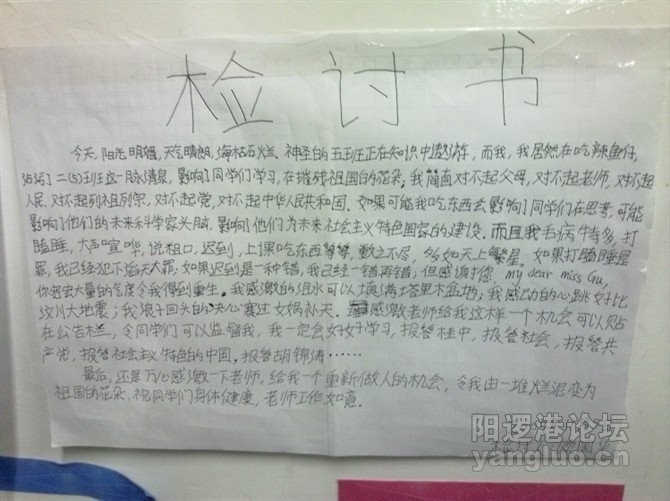 检讨书
今天,阳光明媚,天气晴朗,海枯石烂.神圣的五班正在知识中遨游,而我,我居然在吃辣鱼仔,
沾污了二(5)班这一脉清泉,影响了同学们学习,在摧残祖国的花朵,我简直对不起父母,对不起老师,对不起
人民,对不起列祖列宗,对不起党,对不起中华人民共和国,如果可能我吃东西会影响了同学们在思考,可能
影响了他们的未来科学家头脑,影响了他们为未来社会主义特色国家的建设.而且我毛病特多,打
瞌睡,大声喧哗,说粗口,迟到,上课吃东西等等,数之不尽,多如天上繁星.如果打瞌睡是
罪,我已经犯下滔天大罪;如果迟到是一种错,我已经一错再错;但感谢您 my dear miss Gu,
你宽宏大量的气度令我得到重生.我感激的泪水可以填满塔里木盆地;我感动的心跳好比
汶川大地震;我浪子回头的决心赛过女娲补天.感激老师给我这样一个机会可以贴
在公告栏,令同学们可以监督我,我一定会好好学习,报答桂中,报答社会,报答共
产党,报答社会主义特色的中国.报答胡锦涛……
最后,还是万心感激一下老师,给我一个重新做人的机会,令我由一堆烂泥变为
祖国的花朵,祝同学们身体健康,老师工作如意.
阳逻港论坛
yangluo.cn